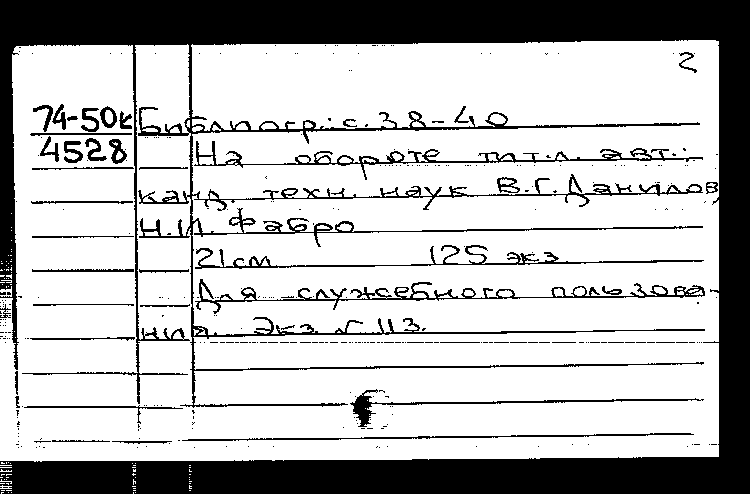 2
74-50к Библиогр.: с. 38-40
4528 На обороте тит.л. авт.:
канд. техн. наук В.Г. Данилов,
Н.И. Фабро
21 см 125 экз.
Для служебного пользова-
ния. Экз. № 113.